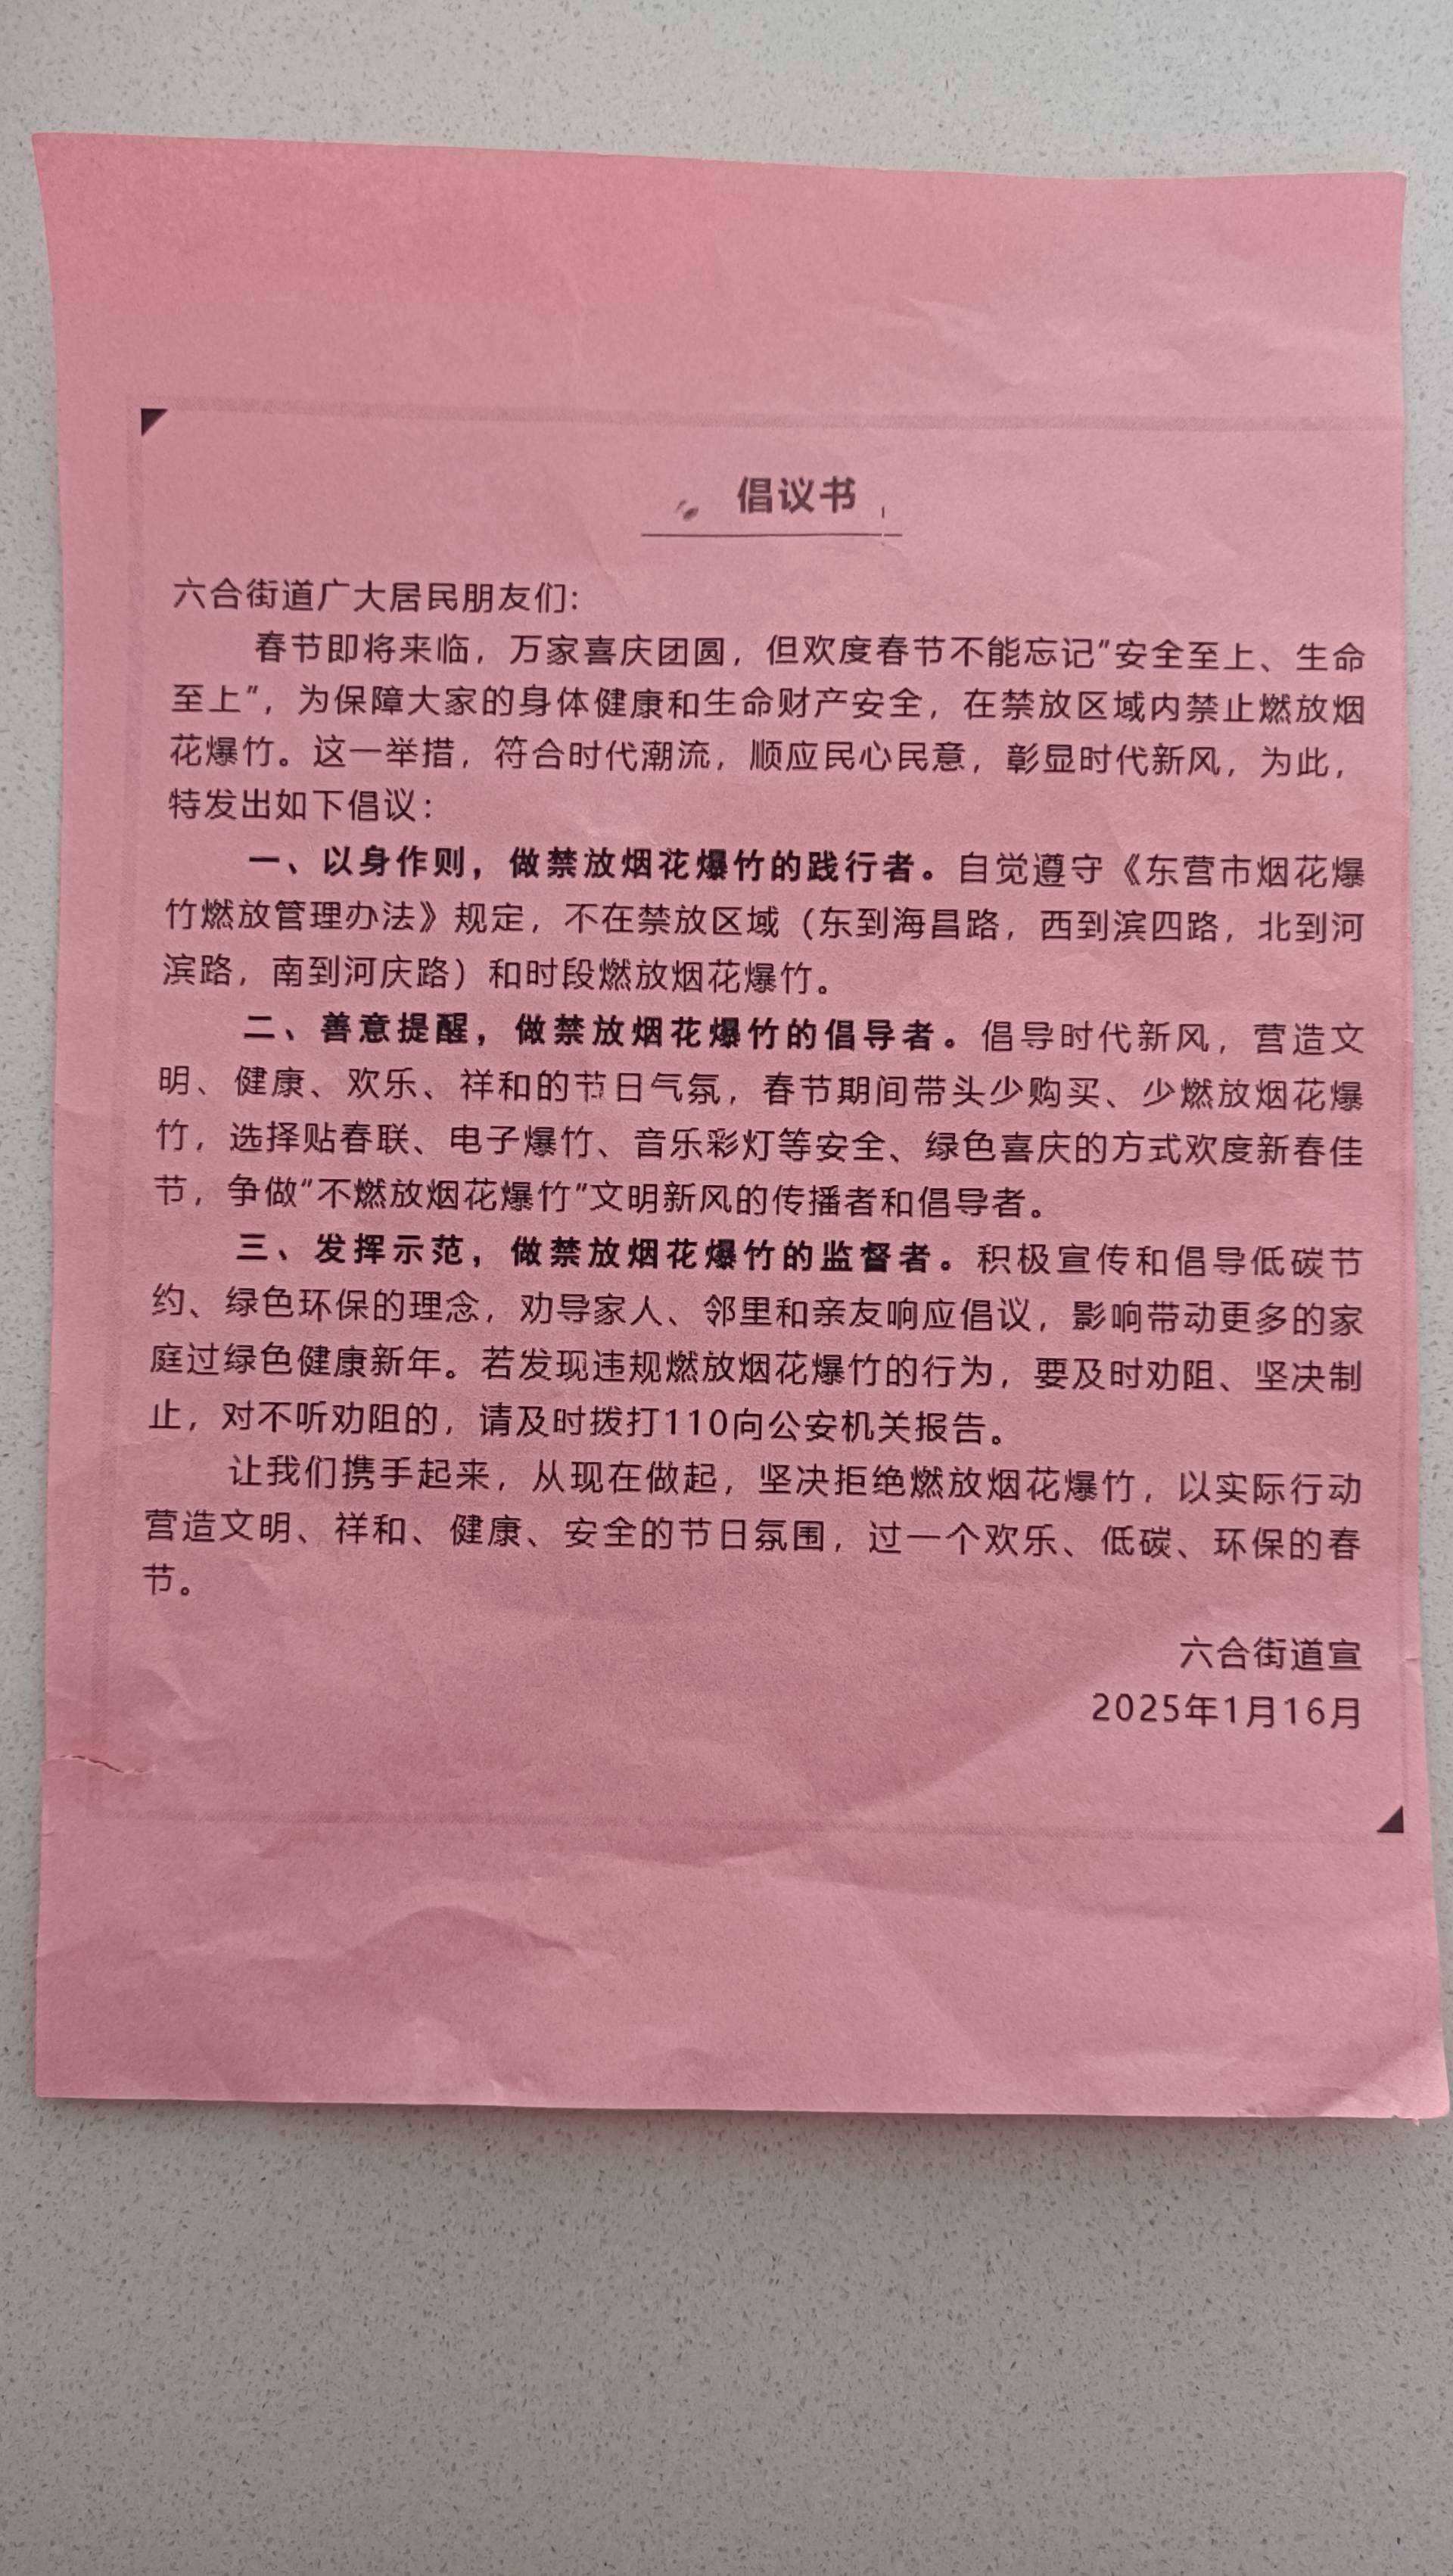 倡议书
六合街道广大居民朋友们:
春节即将来临，万家喜庆团圆，但欢度春节不能忘记"安全至上、生命
至上"，为保障大家的身体健康和生命财产安全，在禁放区域内禁止燃放烟
花爆竹。这一举措，符合时代潮流，顺应民心民意，彰显时代新风，为此，
特发出如下倡议：
一、以身作则，做禁放烟花爆竹的践行者。自觉遵守《东营市烟花爆
竹燃放管理办法》规定，不在禁放区域（东到海昌路，西到滨四路，北到河
滨路，南到河庆路）和时段燃放烟花爆竹。
二、善意提醒，做禁放烟花爆竹的倡导者。倡导时代新风，营造文
明、健康、欢乐、祥和的节日气氛，春节期间带头少购买、少燃放烟花爆
竹，选择贴春联、电子爆竹、音乐彩灯等安全、绿色喜庆的方式欢度新春佳
节，争做"不燃放烟花爆竹"文明新风的传播者和倡导者。
三、发挥示范，做禁放烟花爆竹的监督者。积极宣传和倡导低碳节
约、绿色环保的理念，劝导家人、邻里和亲友响应倡议，影响带动更多的家
庭过绿色健康新年。若发现违规燃放烟花爆竹的行为，要及时劝阻、坚决制
止，对不听劝阻的，请及时拨打110向公安机关报告。
让我们携手起来，从现在做起，坚决拒绝燃放烟花爆竹，以实际行动
营造文明、祥和、健康、安全的节日氛围，过一个欢乐、低碳、环保的春
节。
六合街道宣
2025年1月16月